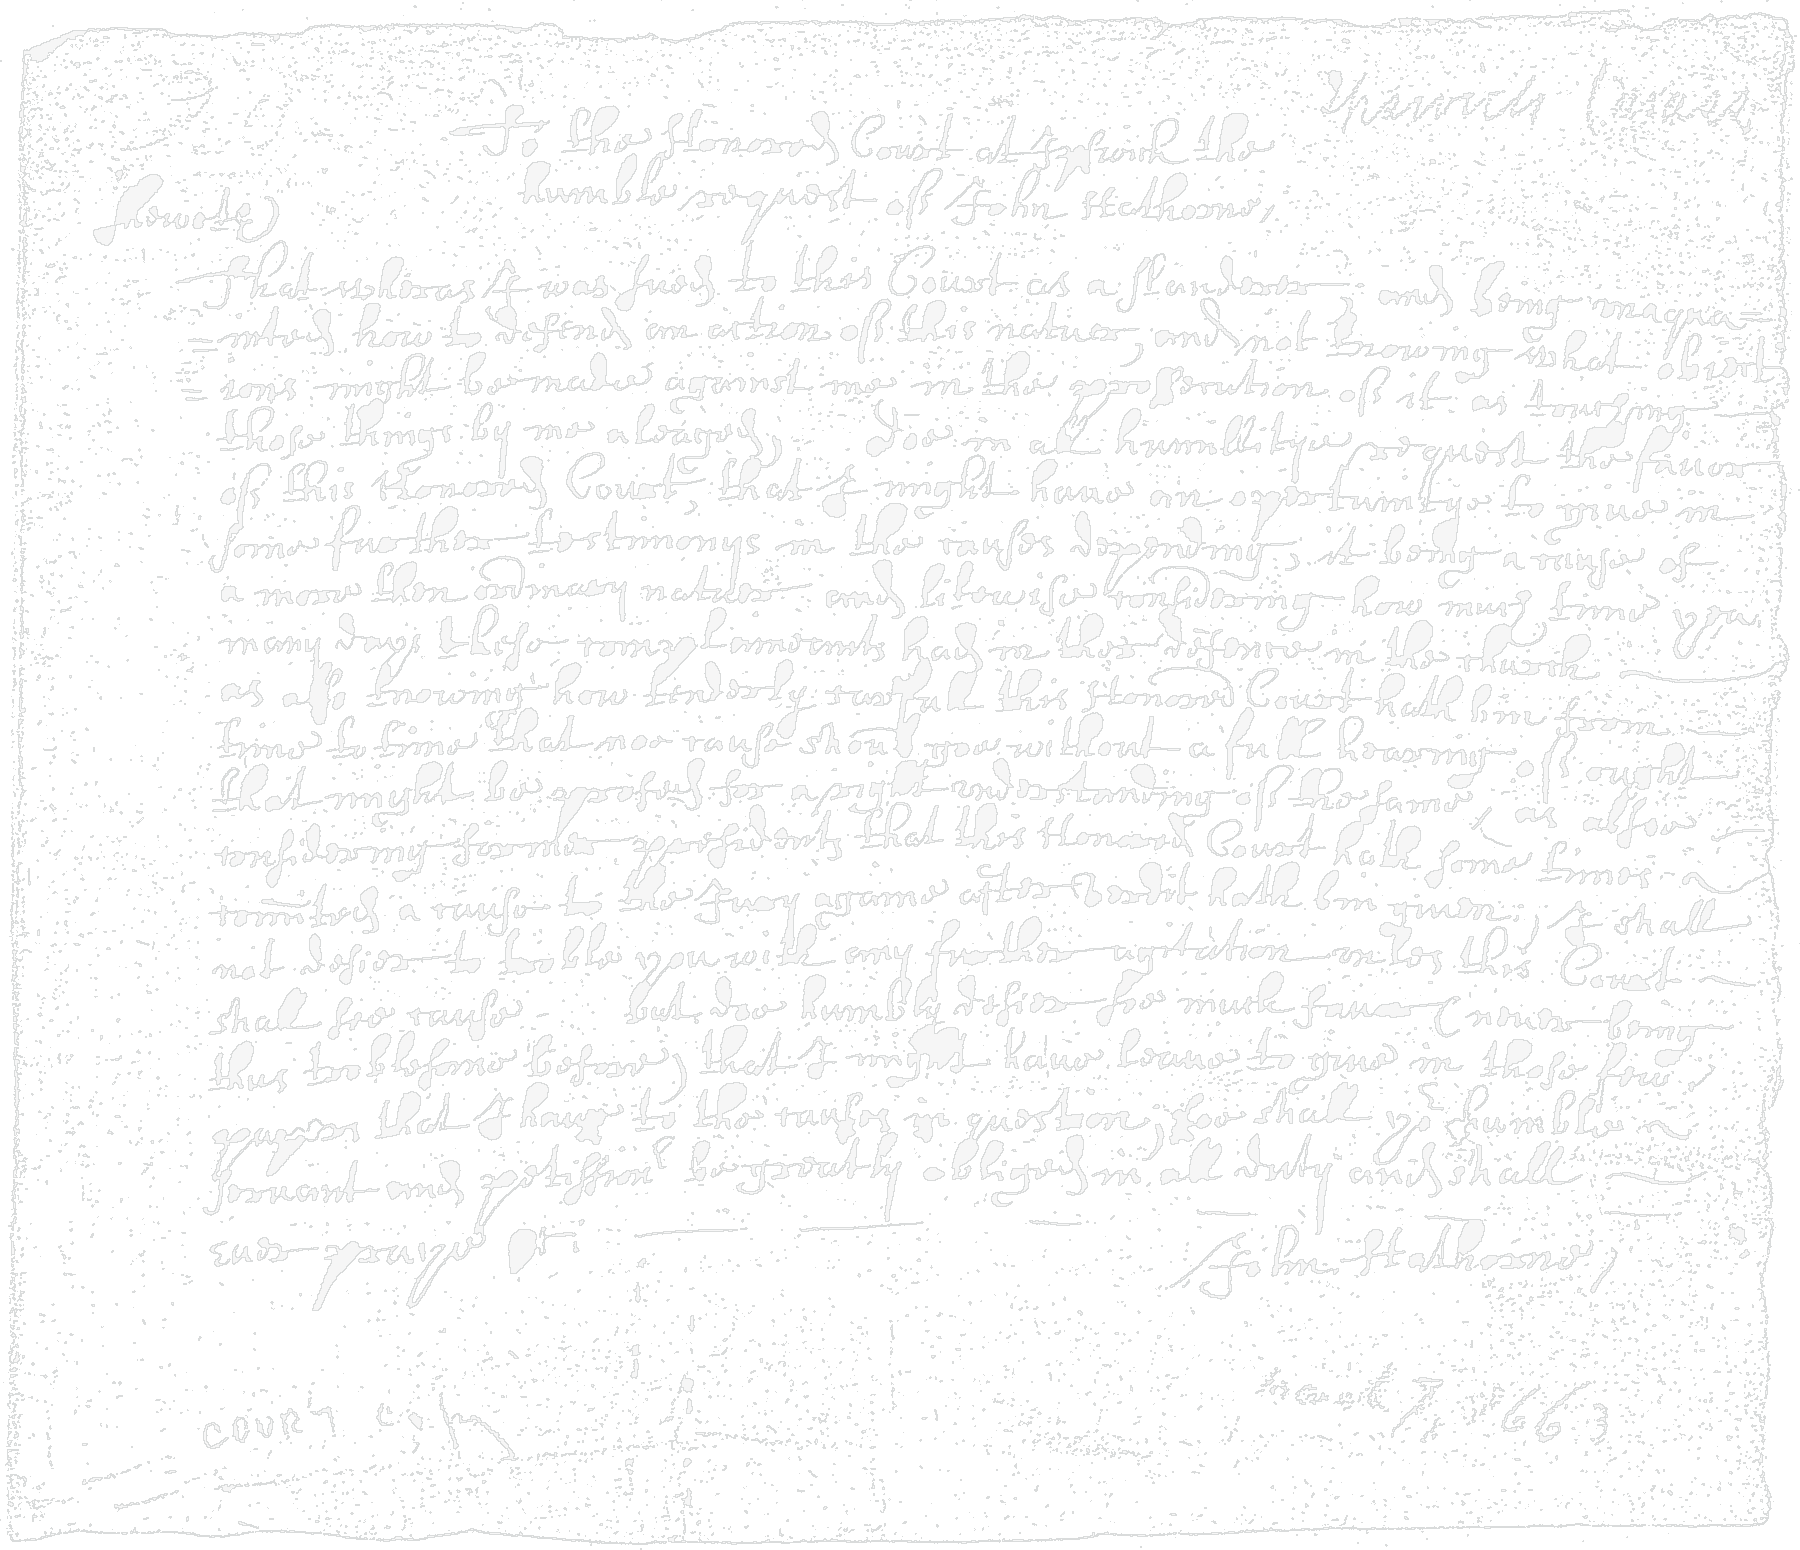 To the Honored Court at Ipswich the
humble request of John Hathorne,
Sheweth
That wheras I was sued to this Court as a slanderer and being unaqua
inted how to defend an action of this nature and not knowing what obiect
ions might be made against me in the prosecution of it as touching
those things by me aleaged, doe in all humillitye request the favor
of this Honored Court, that I might have an oportunitye to give in
some further testimonys in the causes depending, it being a cause of
a more then ordinary nature and likewise considering how much time you
many days these complainants had in ther defence in the church
as also knowing how tenderly carfull this Honored Court hath bin from
time to time that noe cause should goe without a full hearing of ought
that might be proposed for a right understanding of the same as alsoe
considering former presidents that this Honored Court hath some times
comitted a cause to the Jury againe after verdit hath bin given. I shall
not desier to troble you with any further agitation unles this Court
shall see cause but doe humbly desier soe much favor (never being
thus troblesome before) that I might have leave to give in these few
papers that I have to the causes in question, soe shall yo humble
servant and petitioner be greatly obliged in all duty and shall
ever pray et
John Hathorne,
court
march 7 1663